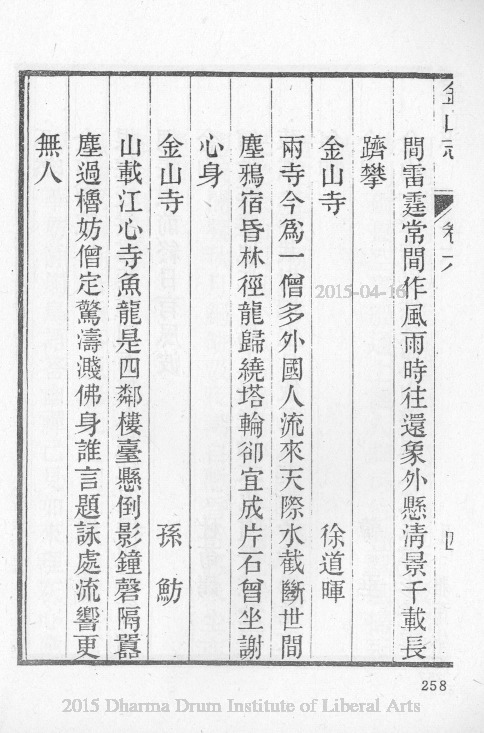 金山志
卷六
四
間雷霆常間作風雨時往還象外懸淸景千載長
躋攀
金山寺
徐道暉
兩寺今爲一僧多外國人流來天際水截斷世間
塵鴉宿昏林徑龍歸繞塔輪卻宜成片石曾坐謝
心身
金山寺
孫魴
山載江心寺魚龍是四鄰樓臺懸倒影鐘磬隔囂
塵過櫓妨僧定驚濤濺佛身誰言題詠處流響更
無人
2015-04-16
258
2015 Dharma Drum Institute of Liberal Arts